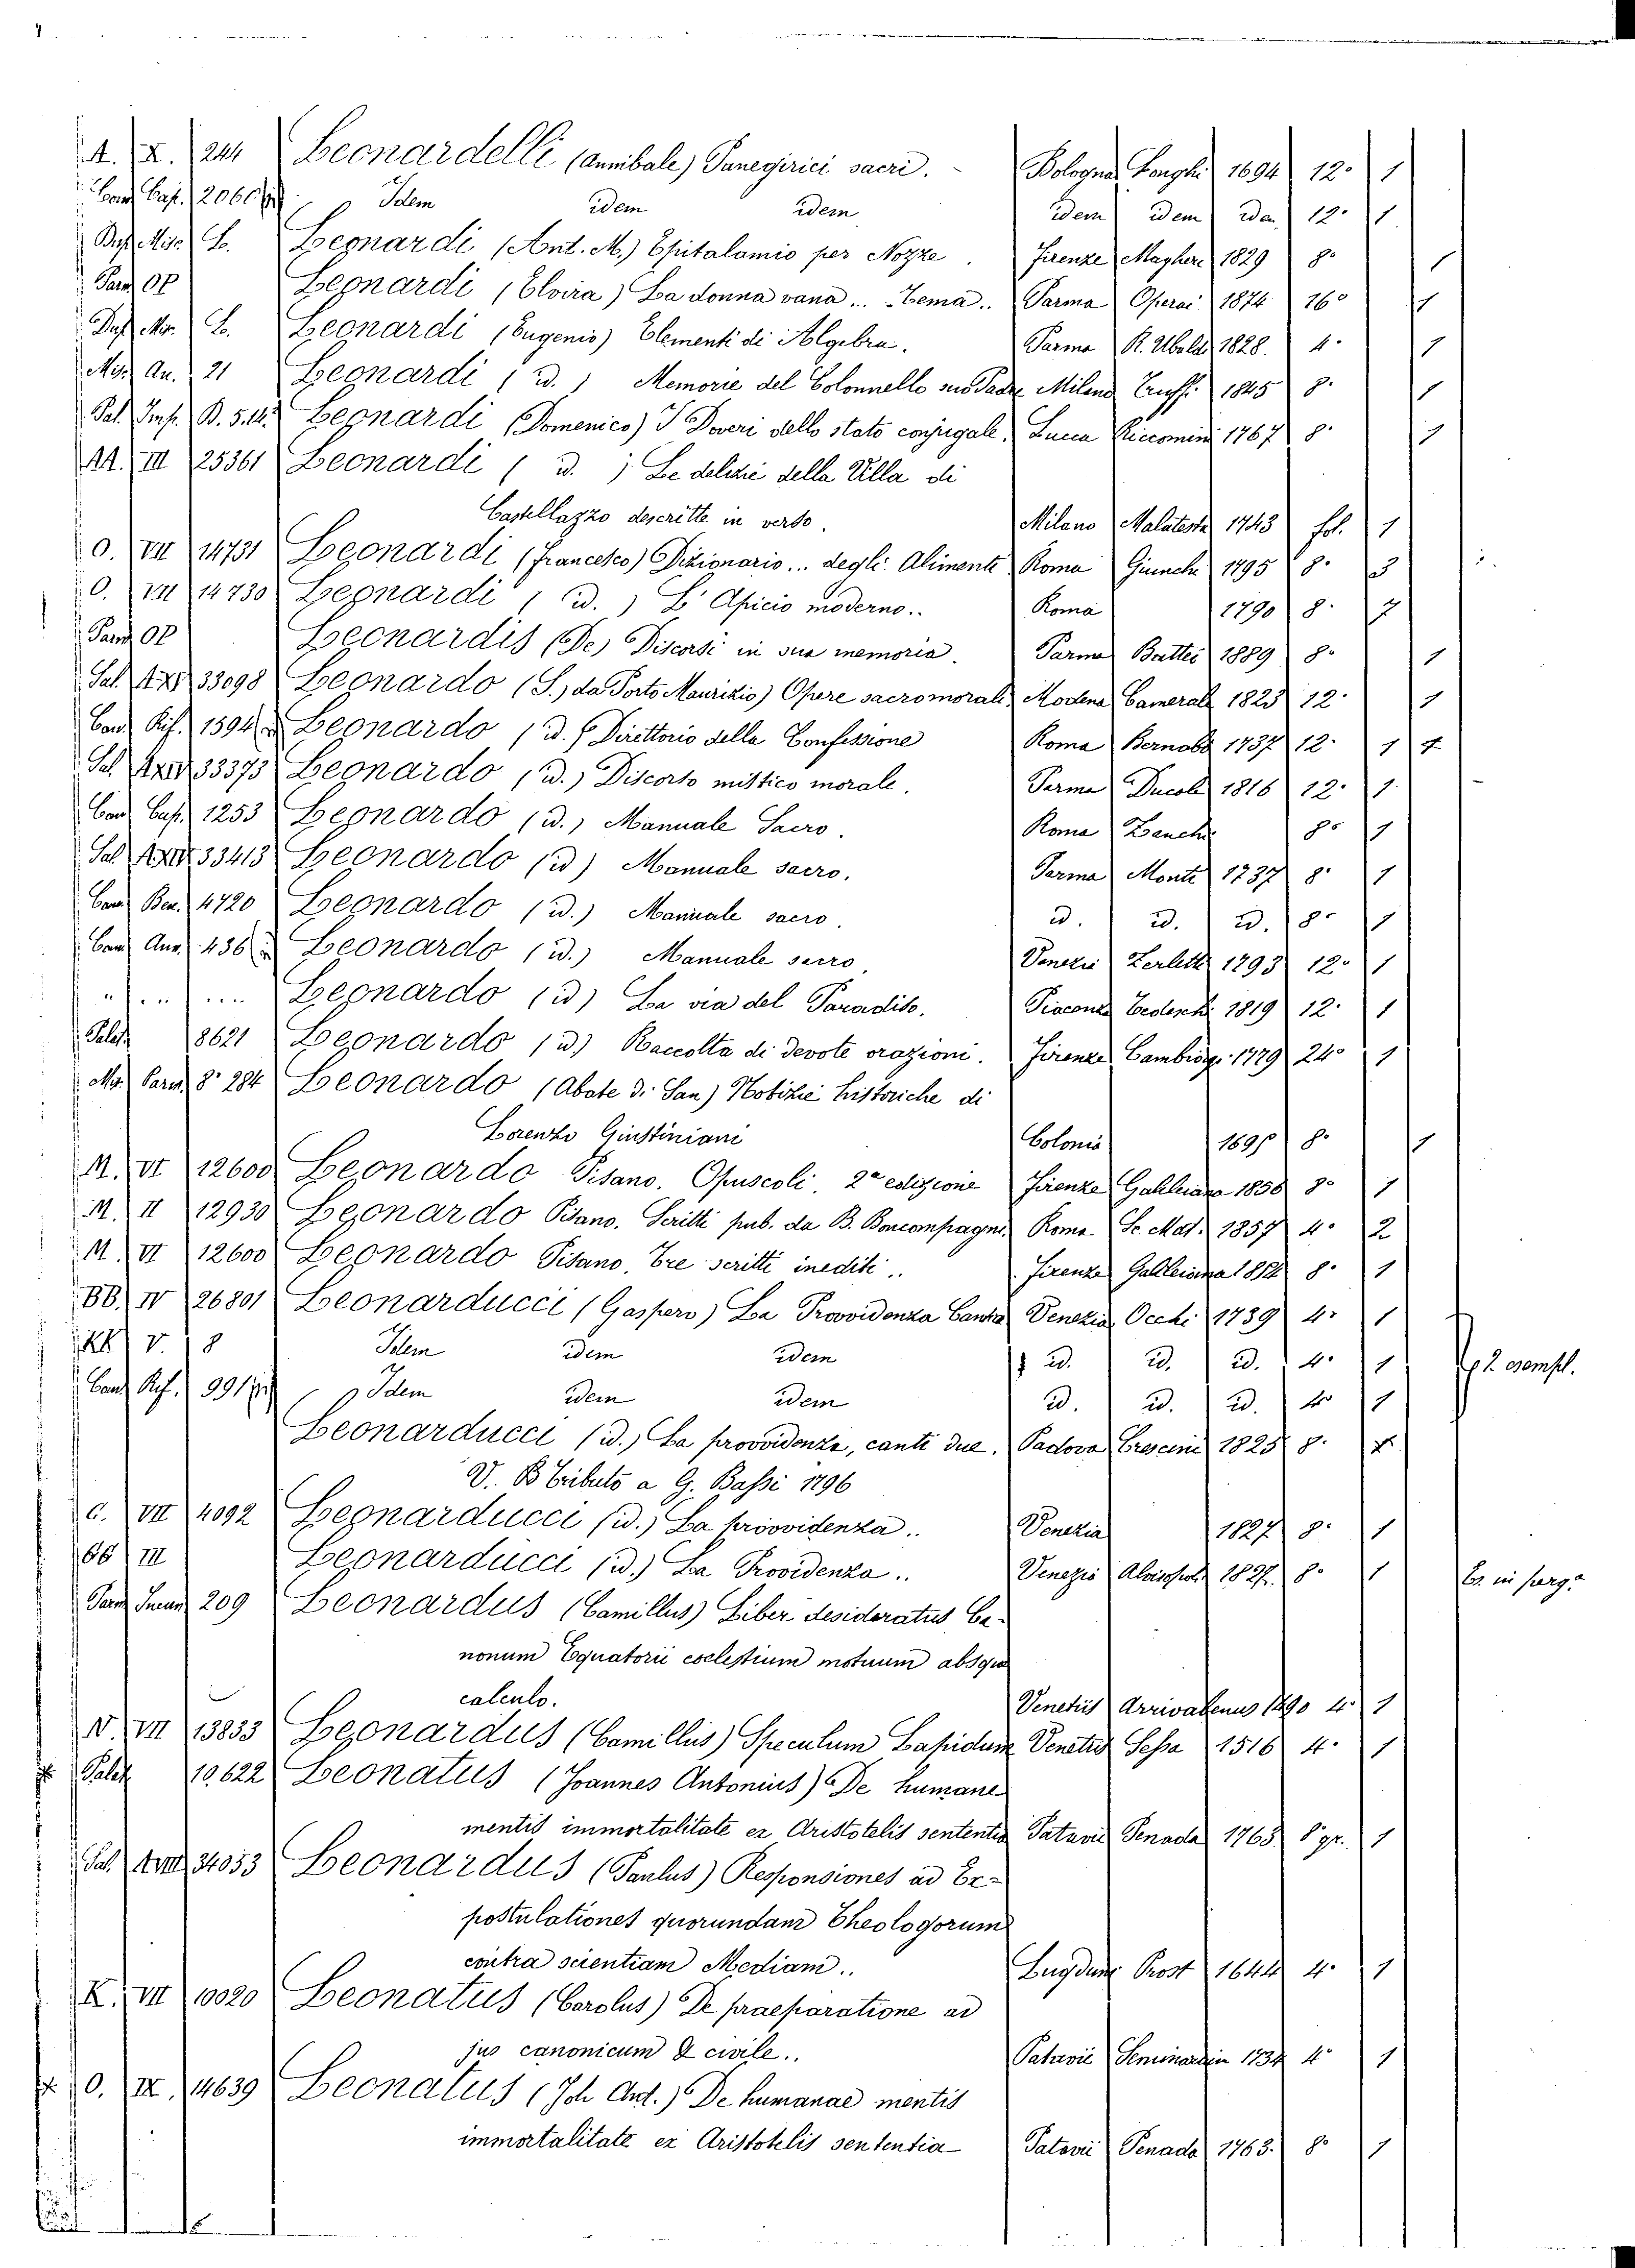 A. X. 244 Leonardelli (Annibale) Panegirici sacri. - Bologna Longhi 1694 12° 1
Caps. 2060 Idem idem idem idem idem idem 12° 1
Misc. L. Leonardi (Ant. M.) Epitalamio per Nozze. Firenze Magheri 1829 8° 1
Parm OP Leonardi (Elvira) La donna vana... Tema.. Parma Operai 1874 16° 1
L. Leonardi (Eugenio) Elementi di Algebra. Parma R. Ubaldi 1828. 4° 1
Misc. An. 21 Leonardi (id.) Memorie del Colonnello suo Padre Milano Truffi 1845 8° 1
Pal. Imp. B. 5.14. Leonardi (Domenico) I Doveri dello stato conjugale. Lucca Riccomini 1767 8° 1
AA. III 25361 Leonardi (id.) Le delizie della Villa di
Castellazzo descritte in verso. Milano Malatesta 1743 fol. 1
O. VII 14731 Leonardi (Francesco) Dizionario... degli Alimenti Roma Giunchi 1795 8° 3
O. VII 14730 Leonardi (id.) L'Apicio moderno.. Roma 1790 8°
Parm OP Leonardis (De) Discorsi in sua memoria. Parma Battei 1889 8° 1
Sal. 33098 Leonardo (S.) da Porto Maurizio) Opere sacro morali Modena Camerale 1823 12° 1
Rif. 1594 Leonardo (id.) Direttorio della Confessione Roma Bernabò 1737 12° 1
Sal. 33373 Leonardo (id.) Discorso mistico morale. Parma Ducale 1816 12° 1
Caps. 1253 Leonardo (id.) Manuale Sacro. Roma Zenchi 8° 1
Sal. 33413 Leonardo (id) Manuale sacro. Parma Monti 1737 8° 1
Ben. 4720 Leonardo (id.) Manuale sacro. id. id. id. 8° 1
Ann. 436 Leonardo (id.) Manuale sacro. Venezia Zerletti 1793 12° 1
" " .... Leonardo (id) La via del Paradiso. Piacenza Tedeschi 1819 12° 1
Palat. 8621 Leonardo (id) Raccolta di devote orazioni. Firenze Cambiagi 1779 24° 1
Ms. Parm. 8° 284 Leonardo (Abate di San) Notizie historiche di
Lorenzo Giustiniani Colonia 8° 1
M. VI 12600 Leonardo Pisano. Opuscoli. 2ª edizione Firenze Galileiana 1856 8° 1
M. II 12930 Leonardo Pisano. Scritti pub. da B. Boncompagni. Roma Sc. Mat. 1857 4° 2
M. VI 12600 Leonardo Pisano. Tre scritti inediti.. Firenze Galileiana 1854 8° 1
BB. IV 26801 Leonarducci (Gaspero) La Provvidenza Cantica Venezia Occhi 1739 4° 1
KK V. 8 Idem idem idem id. id. id. 4° 1 2 esempl.
Rif. 991 Idem idem idem id. id. id. 4° 1
Leonarducci (id.) La provvidenza, canti due. Padova Crescini 1825 8°
V. B Tributo a G. Bassi 1796
C. VII 4092 Leonarducci (id.) La provvidenza.. Venezia 1827 8° 1
III Leonarducci (id.) La Providenza.. Venezia Alvisopoli 1827. 8° 1 Es. in perg.ª
209 Leonardus (Camillus) Liber desideratus Ca-
nonum Equatorii coelestium motuum absque
calculo. Venetiis Arrivabenus 1490 4° 1
N. VII 13833 Leonardus (Camillus) Speculum Lapidum Venetiis Sessa 1516 4° 1
Palat 10,622 Leonatus (Joannes Antonius) De humane
mentis immortalitate ex Aristotelis sententia Patavii Penada 1763 8° gr. 1
Sal. 34053 Leonardus (Paulus) Responsiones ad Ex-
postulationes quorundam Theologorum
contra scientiam Mediam.. Lugduni Prost 1644 4° 1
K. VII 10020 Leonatus (Carolus) De praeparatione ad
jus canonicum & civile.. Patavii Seminarium 1734 4° 1
O. IX. 14639 Leonatus (Joh Ant.) De humanae mentis
immortalitate ex Aristotelis sententia Patavii Penada 1763. 8° 1